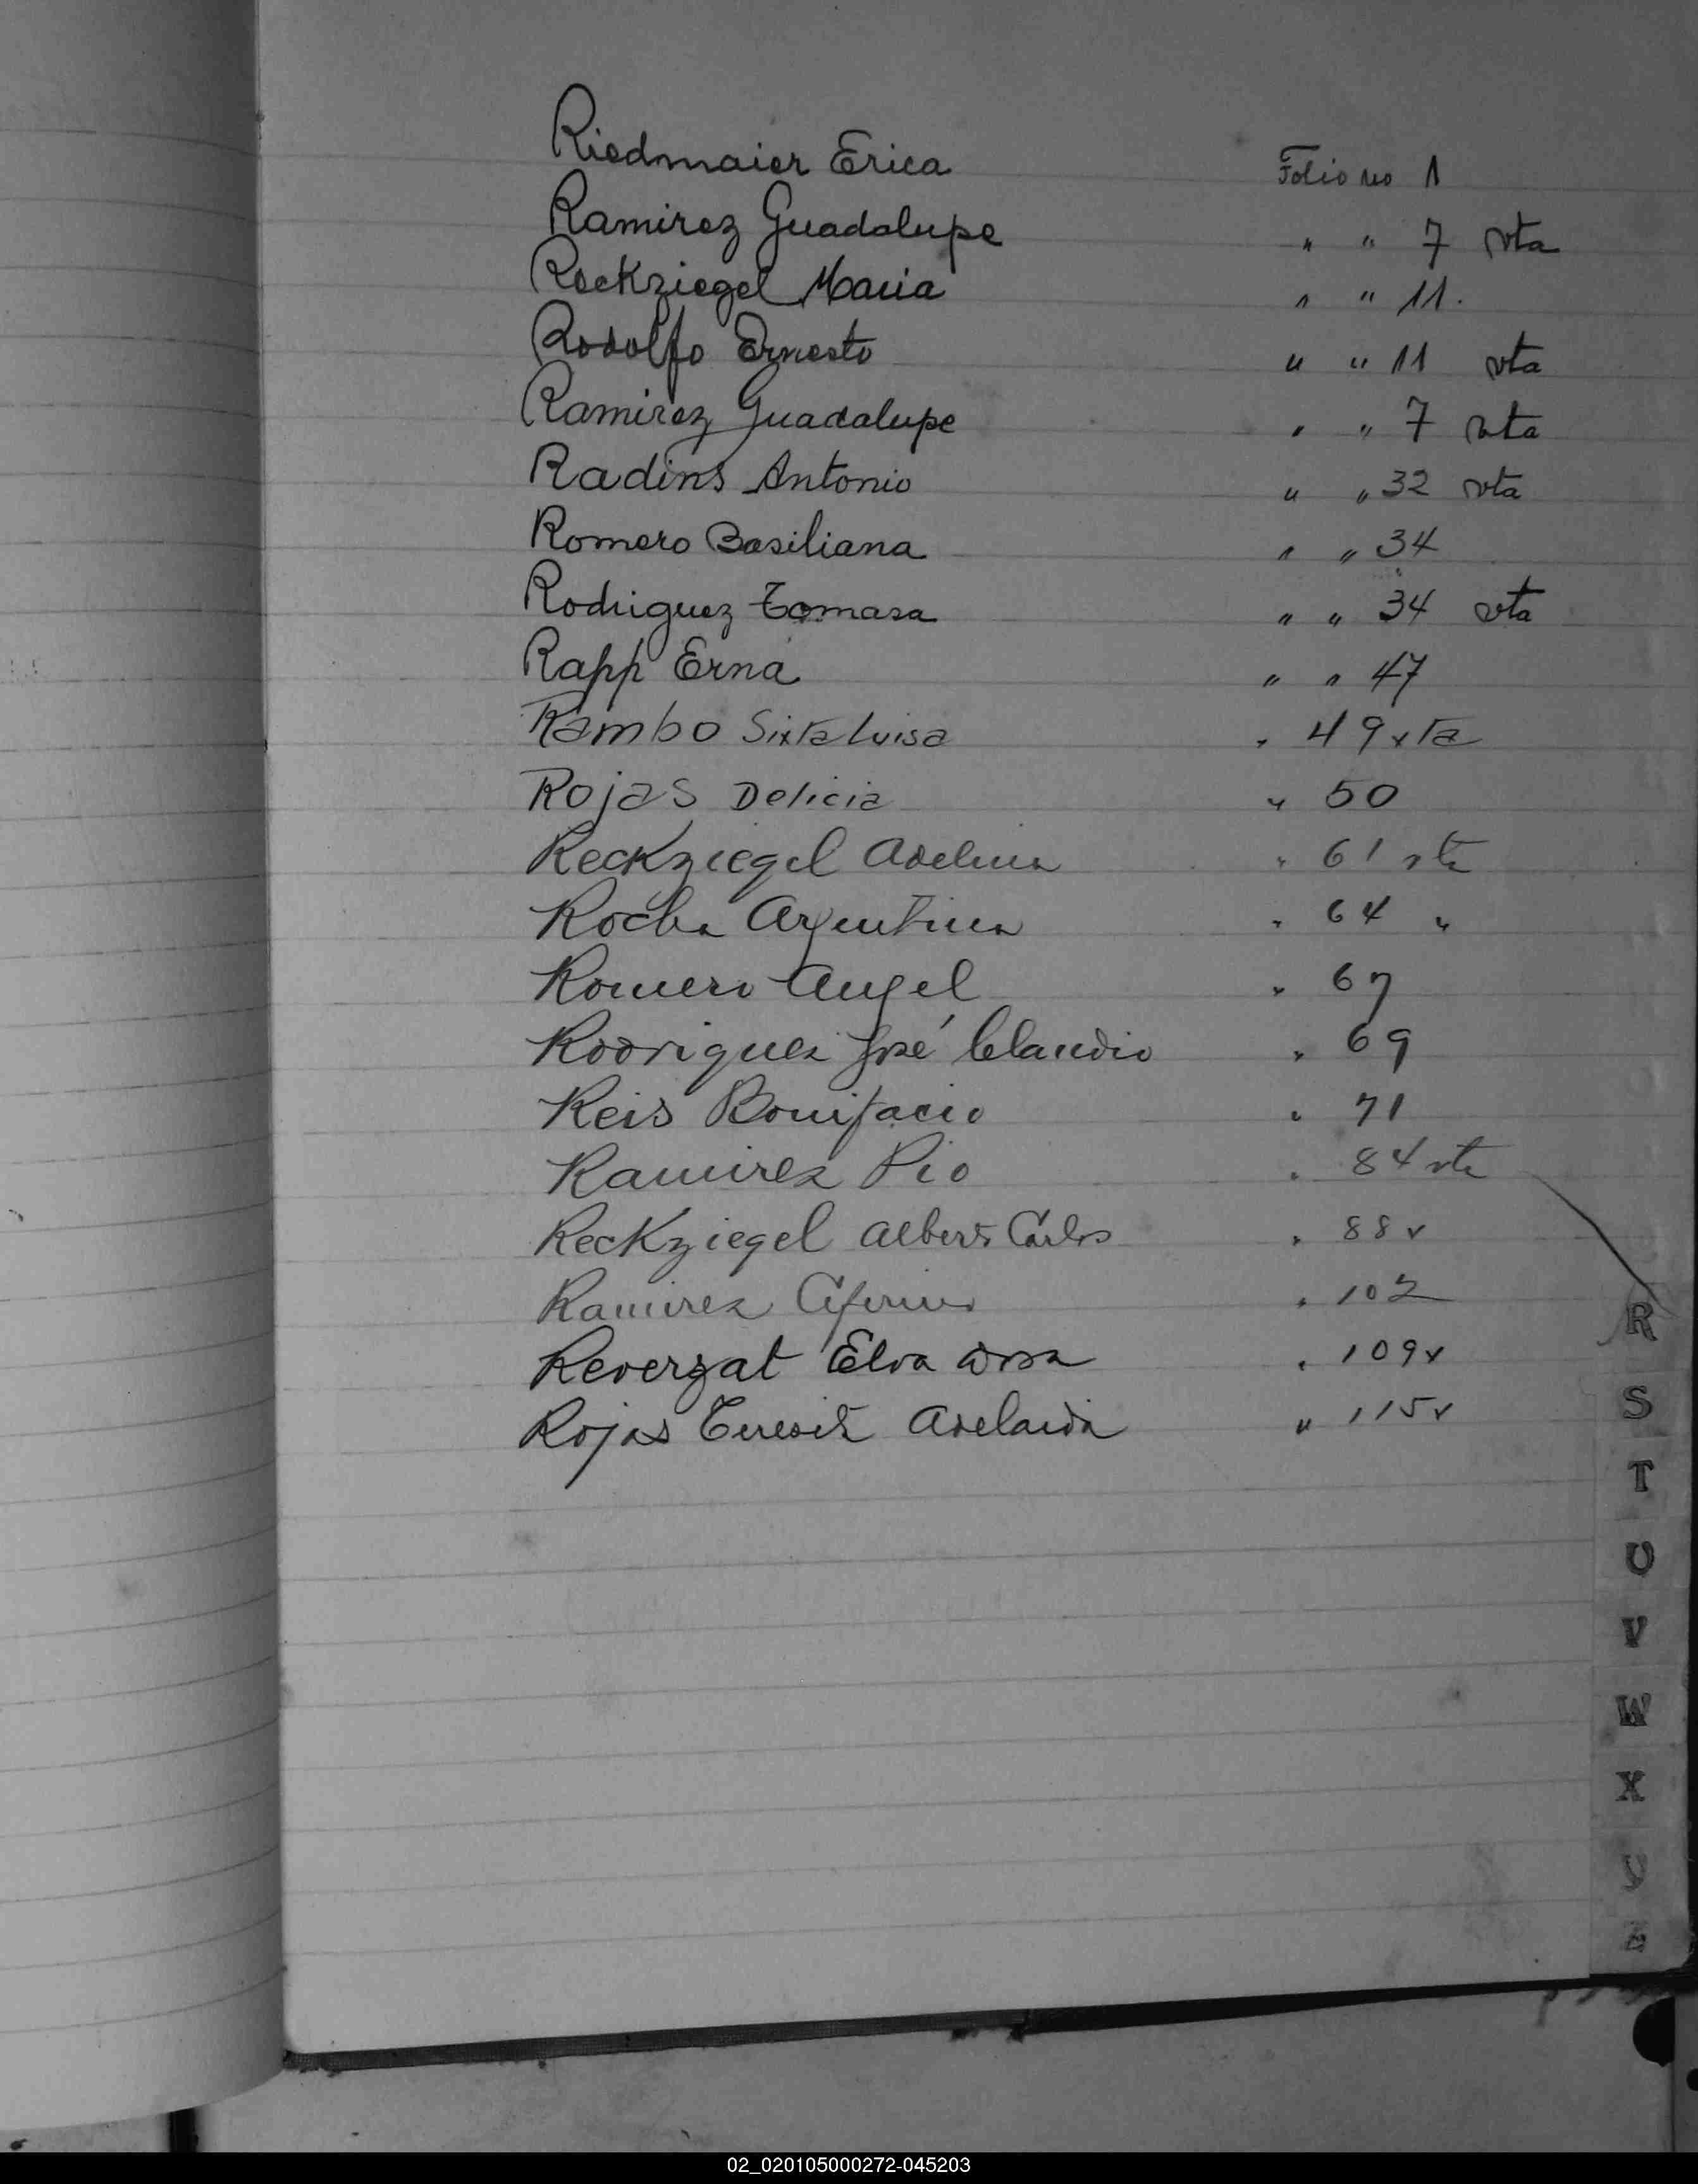 Riedmaier Erica Folio no 1
Ramirez Guadalupe " " 7 vta
Reckziegel Maria " " 11.
Rodolfo Ernesto " " 11 vta
Ramirez Guadalupe " " 7 vta
Radins Antonio " " 32 vta
Romero Basiliana " " 34
Rodriguez Tomasa " " 34 vta
Rapp Erna " " 47
Rambo Sixta Luisa " 49 vta
Rojas Delicia " 50
Reckziegel Adelina " 61 vta
Rocha Argentina " 64 "
Romero Angel " 67
Rodriguez José Claudio " 69
Reis Bonifacio " 71
Ramirez Pio " 84 vta
Reckziegel Alberto Carlos " 88 v
Ramirez " 102
Reverzat Elva " 109 v
Rojas Teresita Adelaida " 115 v
R
S
T
U
V
W
X
Y
Z
02_020105000272-045203